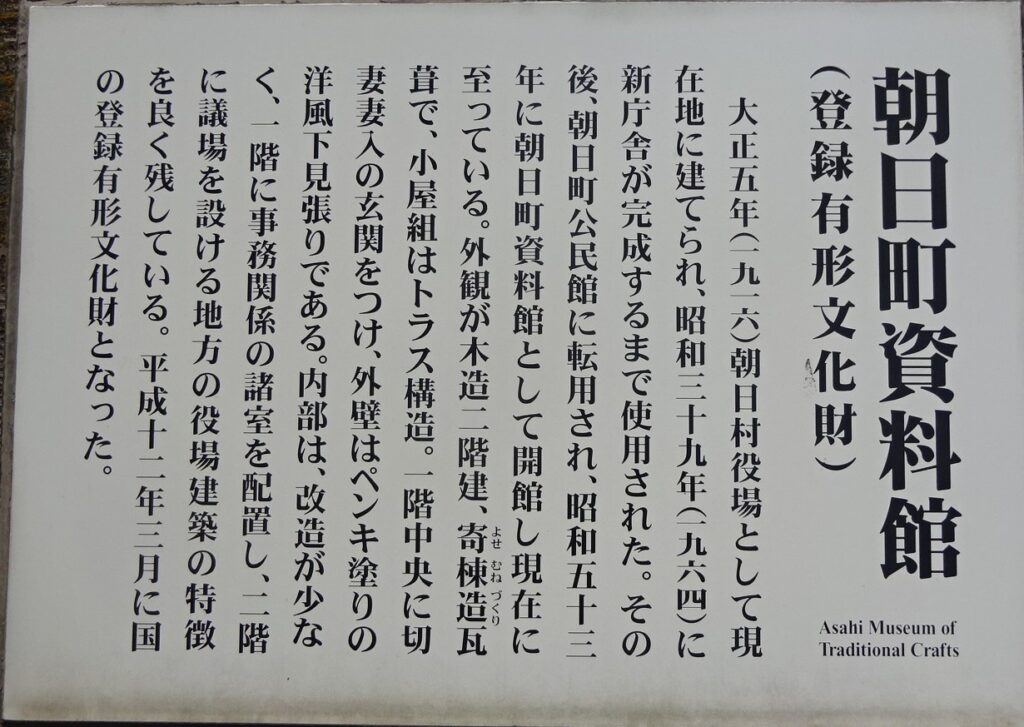 朝日町資料館
（登録有形文化財）
Asahi Museum of
Traditional Crafts
大正五年（一九一六）朝日村役場として現
在地に建てられ、昭和三十九年（一九六四）に
新庁舎が完成するまで使用された。その
後、朝日町公民館に転用され、昭和五十三
年に朝日町資料館として開館し現在に
至っている。外観が木造二階建、寄棟造瓦
よせ むね づくり
葺で、小屋組はトラス構造。一階中央に切
妻妻入の玄関をつけ、外壁はペンキ塗りの
洋風下見張りである。内部は、改造が少な
く、一階に事務関係の諸室を配置し、二階
に議場を設ける地方の役場建築の特徴
を良く残している。平成十二年三月に国
の登録有形文化財となった。